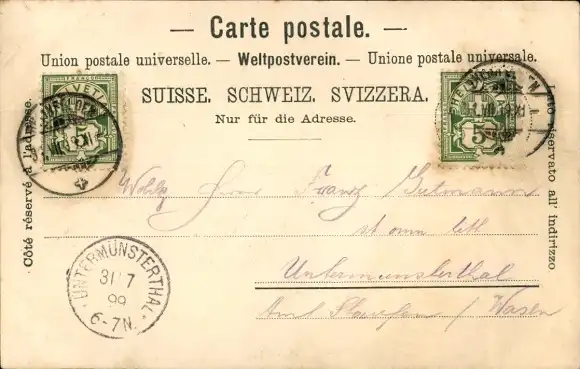 — Carte postale. —
Union postale universelle. — Weltpostverein. — Unione postale universale.
SUISSE. SCHWEIZ. SVIZZERA.
Nur für die Adresse.
Côté réservé à l'adresse.
Lato riservato all' indirizzo
FRANCO
HELVETIA
5
HELVETIA
5
Herrn Franz Gutmann
Untermünsterthal
Amt Staufen / Baden
UNTERMÜNSTERTHAL
31 7
99
6-7N.